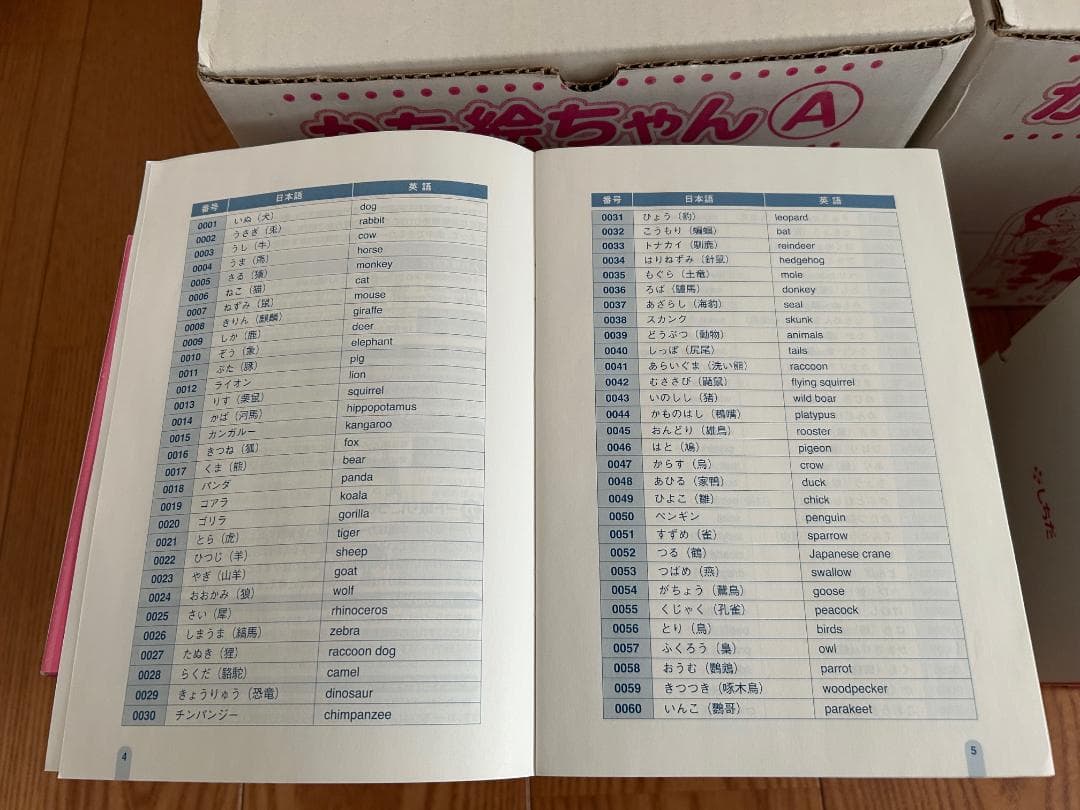 かち絵ちゃん A
か
番号 日本語 英語
0001 いぬ（犬） dog
0002 うさぎ（兎） rabbit
0003 うし（牛） cow
0004 うま（馬） horse
0005 さる（猿） monkey
0006 ねこ（猫） cat
0007 ねずみ（鼠） mouse
0008 きりん（麒麟） giraffe
0009 しか（鹿） deer
0010 ぞう（象） elephant
0011 ぶた（豚） pig
0012 ライオン lion
0013 りす（栗鼠） squirrel
0014 かば（河馬） hippopotamus
0015 カンガルー kangaroo
0016 きつね（狐） fox
0017 くま（熊） bear
0018 パンダ panda
0019 コアラ koala
0020 ゴリラ gorilla
0021 とら（虎） tiger
0022 ひつじ（羊） sheep
0023 やぎ（山羊） goat
0024 おおかみ（狼） wolf
0025 さい（犀） rhinoceros
0026 しまうま（縞馬） zebra
0027 たぬき（狸） raccoon dog
0028 らくだ（駱駝） camel
0029 きょうりゅう（恐竜） dinosaur
0030 チンパンジー chimpanzee
4
番号 日本語 英語
0031 ひょう（豹） leopard
0032 こうもり（蝙蝠） bat
0033 トナカイ（馴鹿） reindeer
0034 はりねずみ（針鼠） hedgehog
0035 もぐら（土竜） mole
0036 ろば（驢馬） donkey
0037 あざらし（海豹） seal
0038 スカンク skunk
0039 どうぶつ（動物） animals
0040 しっぽ（尻尾） tails
0041 あらいぐま（洗い熊） raccoon
0042 むささび（鼯鼠） flying squirrel
0043 いのしし（猪） wild boar
0044 かものはし（鴨嘴） platypus
0045 おんどり（雄鳥） rooster
0046 はと（鳩） pigeon
0047 からす（烏） crow
0048 あひる（家鴨） duck
0049 ひよこ（雛） chick
0050 ペンギン penguin
0051 すずめ（雀） sparrow
0052 つる（鶴） Japanese crane
0053 つばめ（燕） swallow
0054 がちょう（鵞鳥） goose
0055 くじゃく（孔雀） peacock
0056 とり（鳥） birds
0057 ふくろう（梟） owl
0058 おうむ（鸚鵡） parrot
0059 きつつき（啄木鳥） woodpecker
0060 いんこ（鸚哥） parakeet
5
しちだ